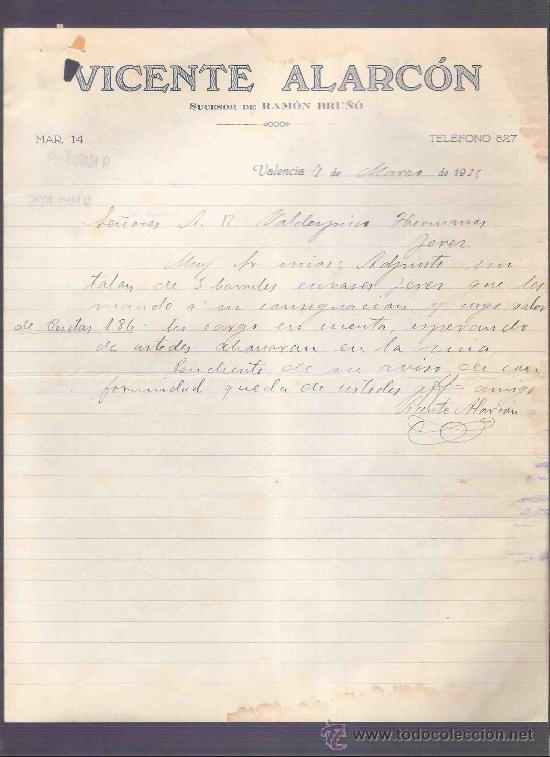 VICENTE ALARCÓN
SUCESOR DE RAMÓN BRUÑÓ
MAR, 14
TELÉFONO 827
9 MAR 1925
Valencia 7 de Marzo de 1925
Señores A. R. Valdespino Hermanos
Jerez
Muy Sr mios: Adjunto un
talon de 3 barriles envases Jerez que les
mando a su consignacion, y cuyo valor
de Pesetas 186. les cargo en cuenta, esperando
de ustedes abonaran en la mia,
Pendiente de su aviso de con
formidad queda de ustedes aff= amigo
Vicente Alarcón
www.todocoleccion.net